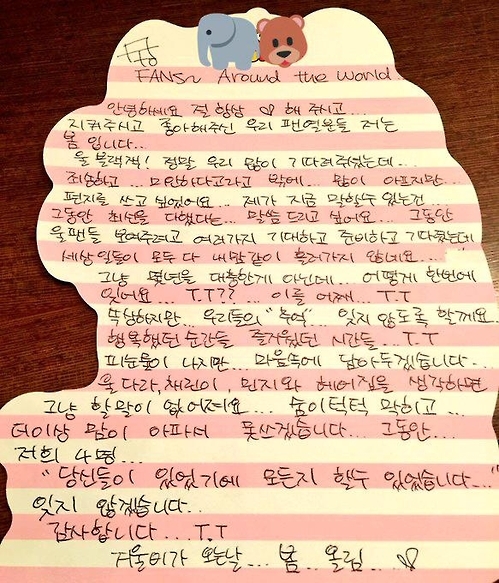 FANS~ Around the World.
안녕하세요 절 항상 ♡ 해 주시고...
지켜주시고 좋아해주신 우리 팬여러분들 저는
봄 입니다...
울 블랙잭! 정말 우리 많이 기다려주셨는데...
죄송하고... 미안하다고라고 밖에... 많이 아프지만...
편지를 쓰고 싶었어요... 제가 지금 말할수 있는건...
그동안 최선을 다했다는... 말씀 드리고 싶어요... 그동안
울팬들 보여주려고 여러가지 기대하고 준비하고 기다렸는데
세상일들이 모두 다 내맘같이 흘러가지 않네요...
그냥 몇년을 대충한게 아닌데... 어떻게 한번에
잊어요... T.T?? ... 이를 어째... T.T
속상하지만... 우리들의 "추억"... 잊지 않도록 할께요..
행복했던 순간들 즐거웠던 시간들... T.T
피눈물이 나지만... 마음속에 담아두겠습니다..
울 다라, 채린이, 민지와 헤어짐을 생각하면
그냥 할말이 없어져요... 숨이턱턱 막히고...
더이상 맘이 아파서 못쓰겠습니다... 그동안...
저희 4명...
"당신들이 있었기에 모든지 핼수 있었습니다..."
잊지 않겠습니다..
감사합니다... T.T
겨울비가 오는날... 봄.. 올림... ♡